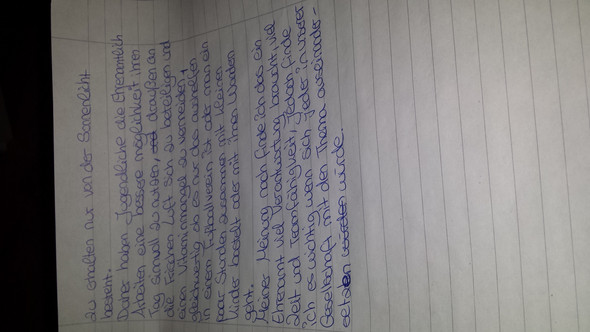 zu erhalten nur von der Sonnenlicht
besteht.
Daher haben Jugendliche die Ehrenamtlich
Arbeiten eine bessere möglichkeit ihren
Tag sinvoll zu nutzen, draußen an
die Frischen Luft sich zu beteiligen und
einen Vitaminmangel zu vermeiden,
gleichwertig ob es nur das aushelfen
in einem Fußballverein ist oder man ein
paar Stunden zusammen mit kleinen
Kinder bastelt oder mit ihnen Wandern
geht.
Meiner Meinung nach finde ich das ein
Ehrenamt viel Verantwortung braucht, viel
Zeit und Teamfähigkeit, jedoch finde
ich es wichtig wenn sich "jeder" in unserer
Gesellschaft mit den Thema auseinander-
setzen würde.